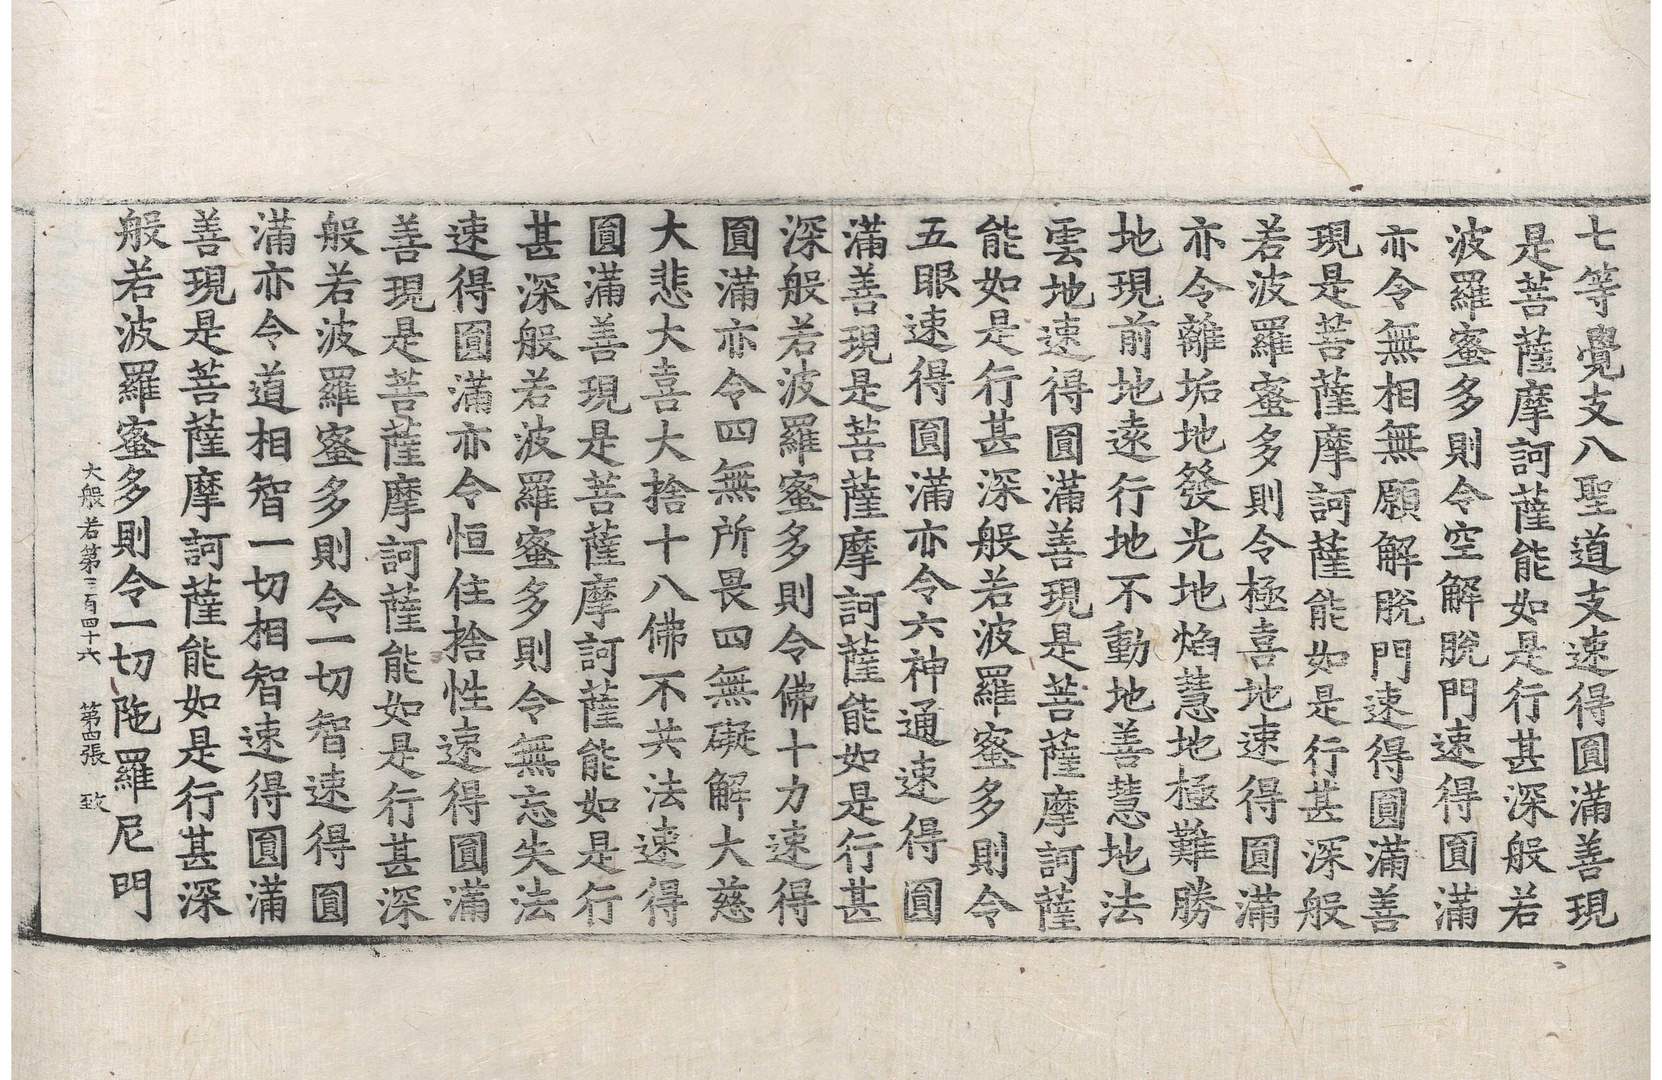 七等覺支八聖道支速得圓滿善現
是菩薩摩訶薩能如是行甚深般若
波羅蜜多則令空解脫門速得圓滿
亦令無相無願解脫門速得圓滿善
現是菩薩摩訶薩能如是行甚深般
若波羅蜜多則令極喜地速得圓滿
亦令離垢地發光地焰慧地極難勝
地現前地遠行地不動地善慧地法
雲地速得圓滿善現是菩薩摩訶薩
能如是行甚深般若波羅蜜多則令
五眼速得圓滿亦令六神通速得圓
滿善現是菩薩摩訶薩能如是行甚
深般若波羅蜜多則令佛十力速得
圓滿亦令四無所畏四無礙解大慈
大悲大喜大捨十八佛不共法速得
圓滿善現是菩薩摩訶薩能如是行
甚深般若波羅蜜多則令無忘失法
速得圓滿亦令恒住捨性速得圓滿
善現是菩薩摩訶薩能如是行甚深
般若波羅蜜多則令一切智速得圓
滿亦令道相智一切相智速得圓滿
善現是菩薩摩訶薩能如是行甚深
般若波羅蜜多則令一切陁羅尼門
大般若第三百四十六 第四張 致